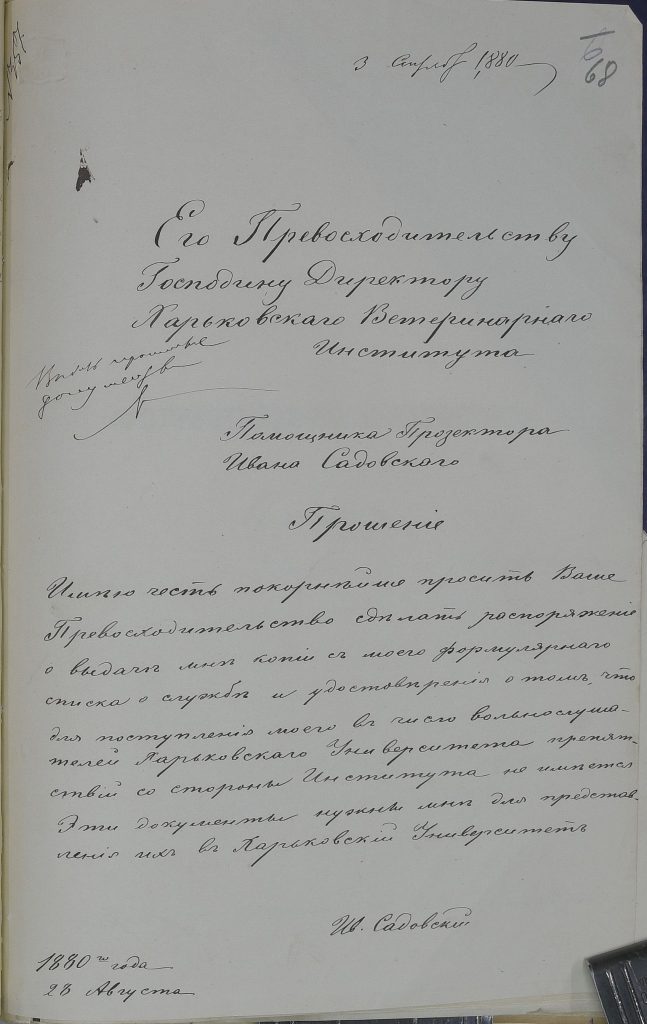 3 1880
68
Его Превосходительству
Господину Директору
Харьковскаго Ветеринарнаго
Института
Помощника Прозектора
Ивана Садовскаго
Прошеніе
Имѣю честь покорнѣйше просить Ваше
Превосходительство сдѣлать распоряженіе
о выдачѣ мнѣ копіи съ моего формулярнаго
списка о службѣ и удостовѣренія о томъ, что
для поступленія моего въ число вольнослуша-
телей Харьковскаго Университета препят-
ствій со стороны Института не имѣется
Эти документы нужны мнѣ для представ-
ленія ихъ въ Харьковскій Университетъ
Ив. Садовскій
1880 го года
28 Августа